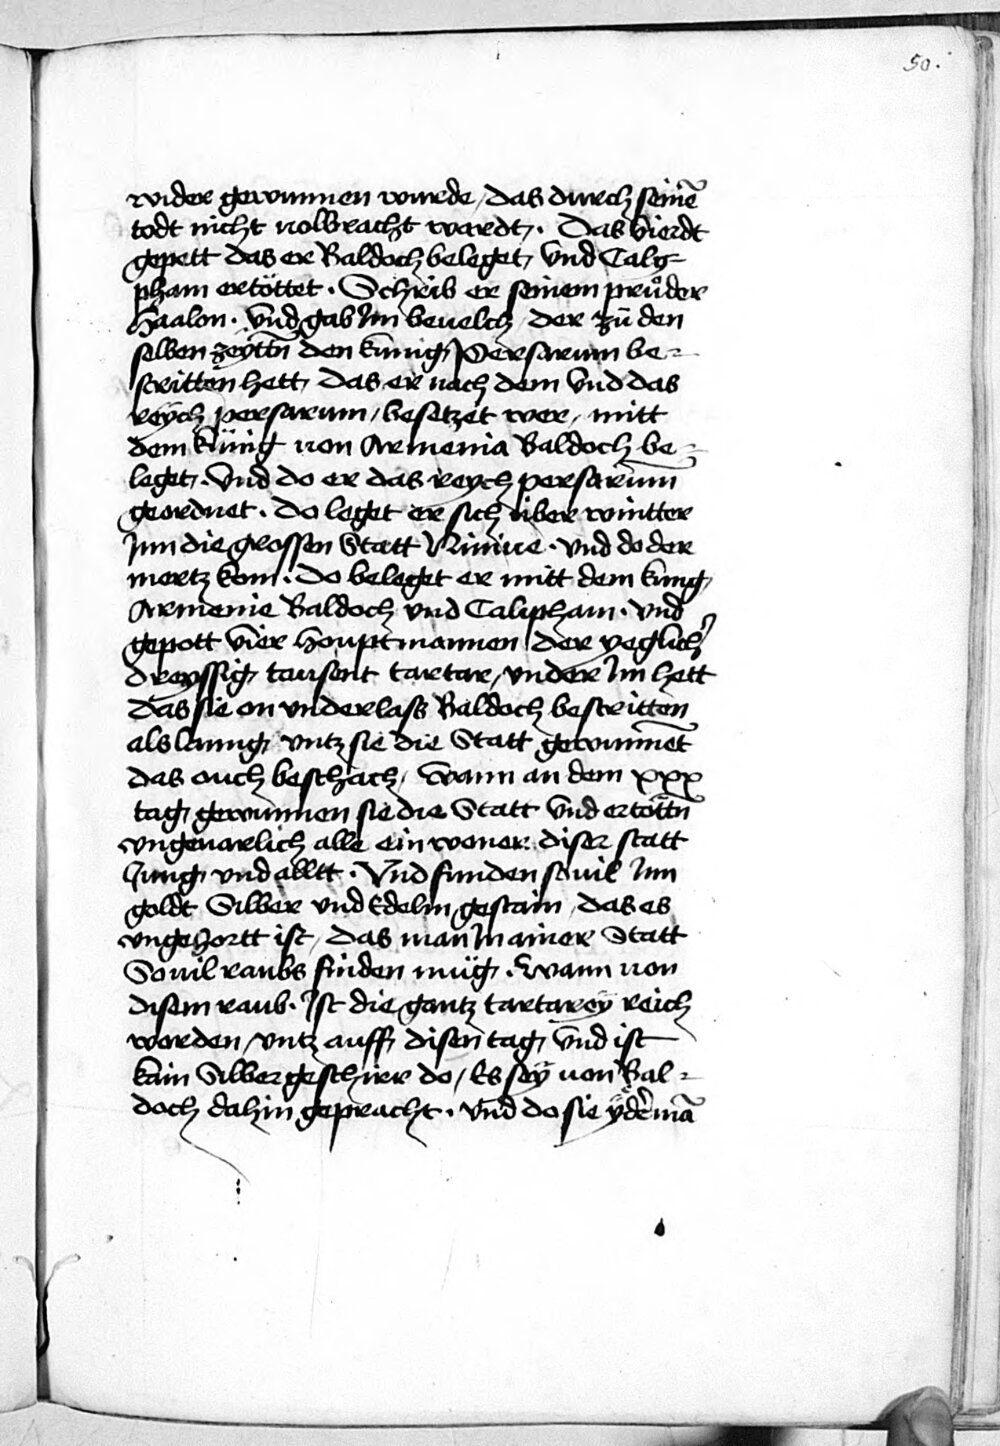 50.
wider gewunnen wurde / das durch seinē
todt nicht uolbracht wardt / . Das vierdt
gepett das er Baldoch beleget / vnd Calÿ-
pham ertöttet . Schrib er seinem průder
Haalon . vnd gab Im beuelch / der zů den
selben zeyttn̄ den kunig Persarum be-
stritten hett / das er nach dem vnd das
reÿch persarum / besetzet wer / mitt
dem kűnig von Armenia Baldoch be-
leget / . vnd do er das reych persarum
geordnet . do leget er sich uber wintter
Jnn die grossen Statt Niniue . vnd do der
mertz kom . do beleget er mitt dem kung
Armenie Baldoch vnd Calipham . vnd
gepott vier houptmannen der yeglichʾ
dreyssig tausent tartar / vnder Im hett
das sie on vnderlass Baldoch bestritten
als lanng vntz sie die Statt gewunnēt
das ouch beschach / wann an dem xxx
tag gewunnen sie die Statt vnd ertöttn̄
vngeuarlich alle einwoner diser statt
Jung vnd alltt . Vnd funden souil Inn
goldt Silber vnd Edelm gestain / das es
vngehortt ist / das man Jn ainer Statt
Souil raubs finden müg . wann von
disem raub . Ist die gantz tartarey reich
worden / vntz auff disen tag vnd ist
kain Silbergeschirr do / Es seÿ uon Bal-
doch dahin gepracht . vnd do sie ÿdermā